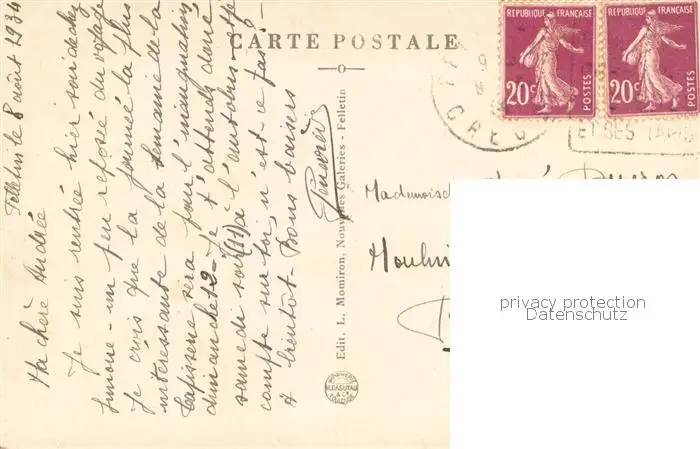 Felletin le 8 août 1934
Ma chère Andrée
Je suis rentrée hier soir de chez
Simone - un peu reposée du voyage
Je crois que la journée la plus
intéressante de la semaine de la
tapisserie sera pour l'inauguration
dimanche 12 - Je t'attends donc
samedi soir (11) à l'autobus
compte sur toi, n'est-ce pas ?
A bientôt - Bons baisers
CARTE POSTALE
Edit. L. Momiron, Nouvelles Galeries - Felletin
REPUBLIQUE FRANÇAISE
20c
POSTES
REPUBLIQUE FRANÇAISE
20c
POSTES
CREUSE
ET SES TAPIS
Mademoiselle
Moulin
privacy protection
Datenschutz